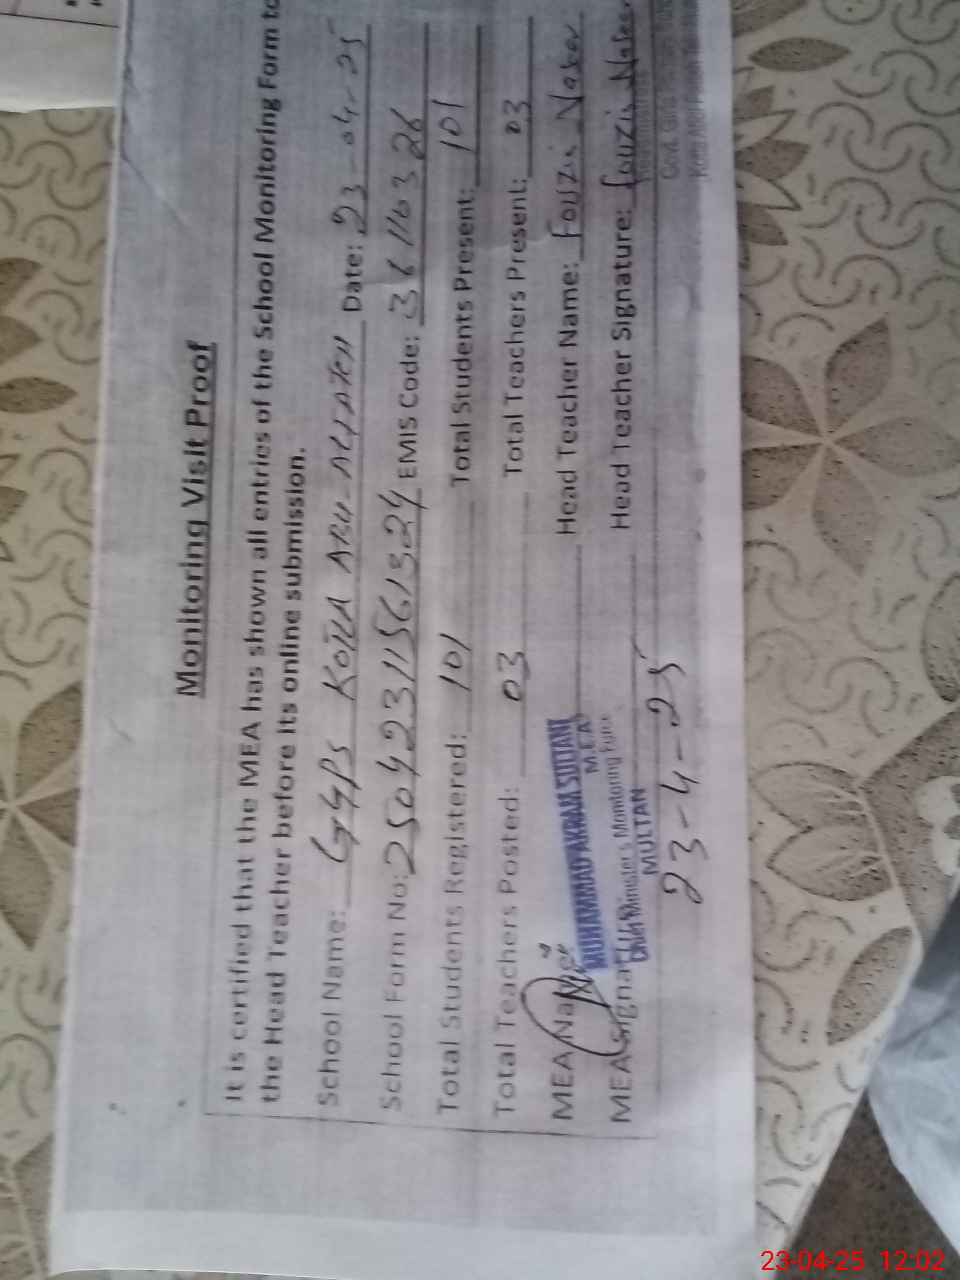 Monitoring Visit Proof
It is certified that the MEA has shown all entries of the School Monitoring Form to
the Head Teacher before its online submission.
School Name: GGPS KOTLA Date: 23-04-25
School Form No: 25042311561324 EMIS Code: 36110326
Total Students Registered: 101 Total Students Present: 101
Total Teachers Posted: 03 Total Teachers Present: 03
MEA Name MUHAMMAD AKRAM SULTANI Head Teacher Name: Fouzia
M.E.A
MEA Signature Chief Minister's Monitoring Force Head Teacher Signature: Fouzia
MULTAN
23-4-25
Govt. Girls
23-04-25 12:02